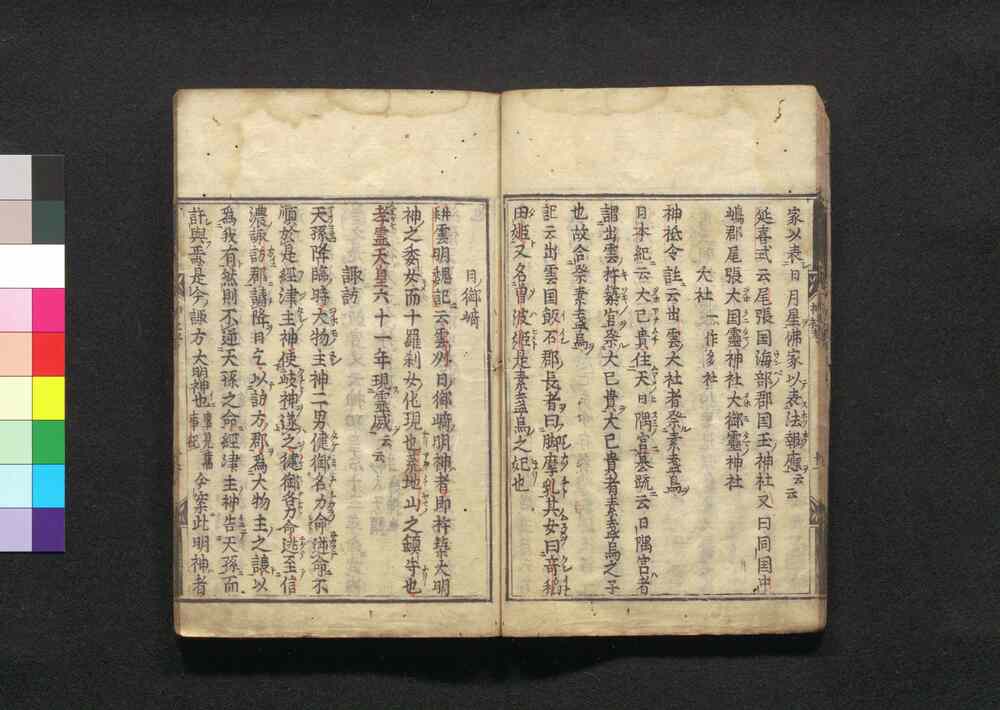 家以表日月星佛家以表法報應云云
延喜式云尾張国海部郡国玉神社又曰同国中
嶋郡尾張大国靈神社大御靈神社
大社一作多社
神祇令註云出雲大社者祭素盞烏
日本紀云大己貴住天日隅宮基疏云日隅宮者
謂出雲杵築宮祭大己貴大己貴者素盞烏之子
也故合祭素盞烏
記云出雲国飯石郡長者曰脚摩乳其女曰奇稲
田姫又名曽波姫是素盞烏之妃也
日御﨑
耕雲明魏記云雲州日御﨑明神者即杵築大明
神之委女而十羅刹女化現也荒地山之鎮守也
孝霊天皇六十一年現霊威云云
諏訪
天孫降臨時大物主神二男健御名方命逆命不
順於是經津主神使岐神逐之健御名方命逃至信
濃諏訪郡請降曰乞以訪方郡為大物主之譲以
為我有然則不逆天孫之命經津主神告天孫而
許與焉是今諏方大明神也 今案此明神者